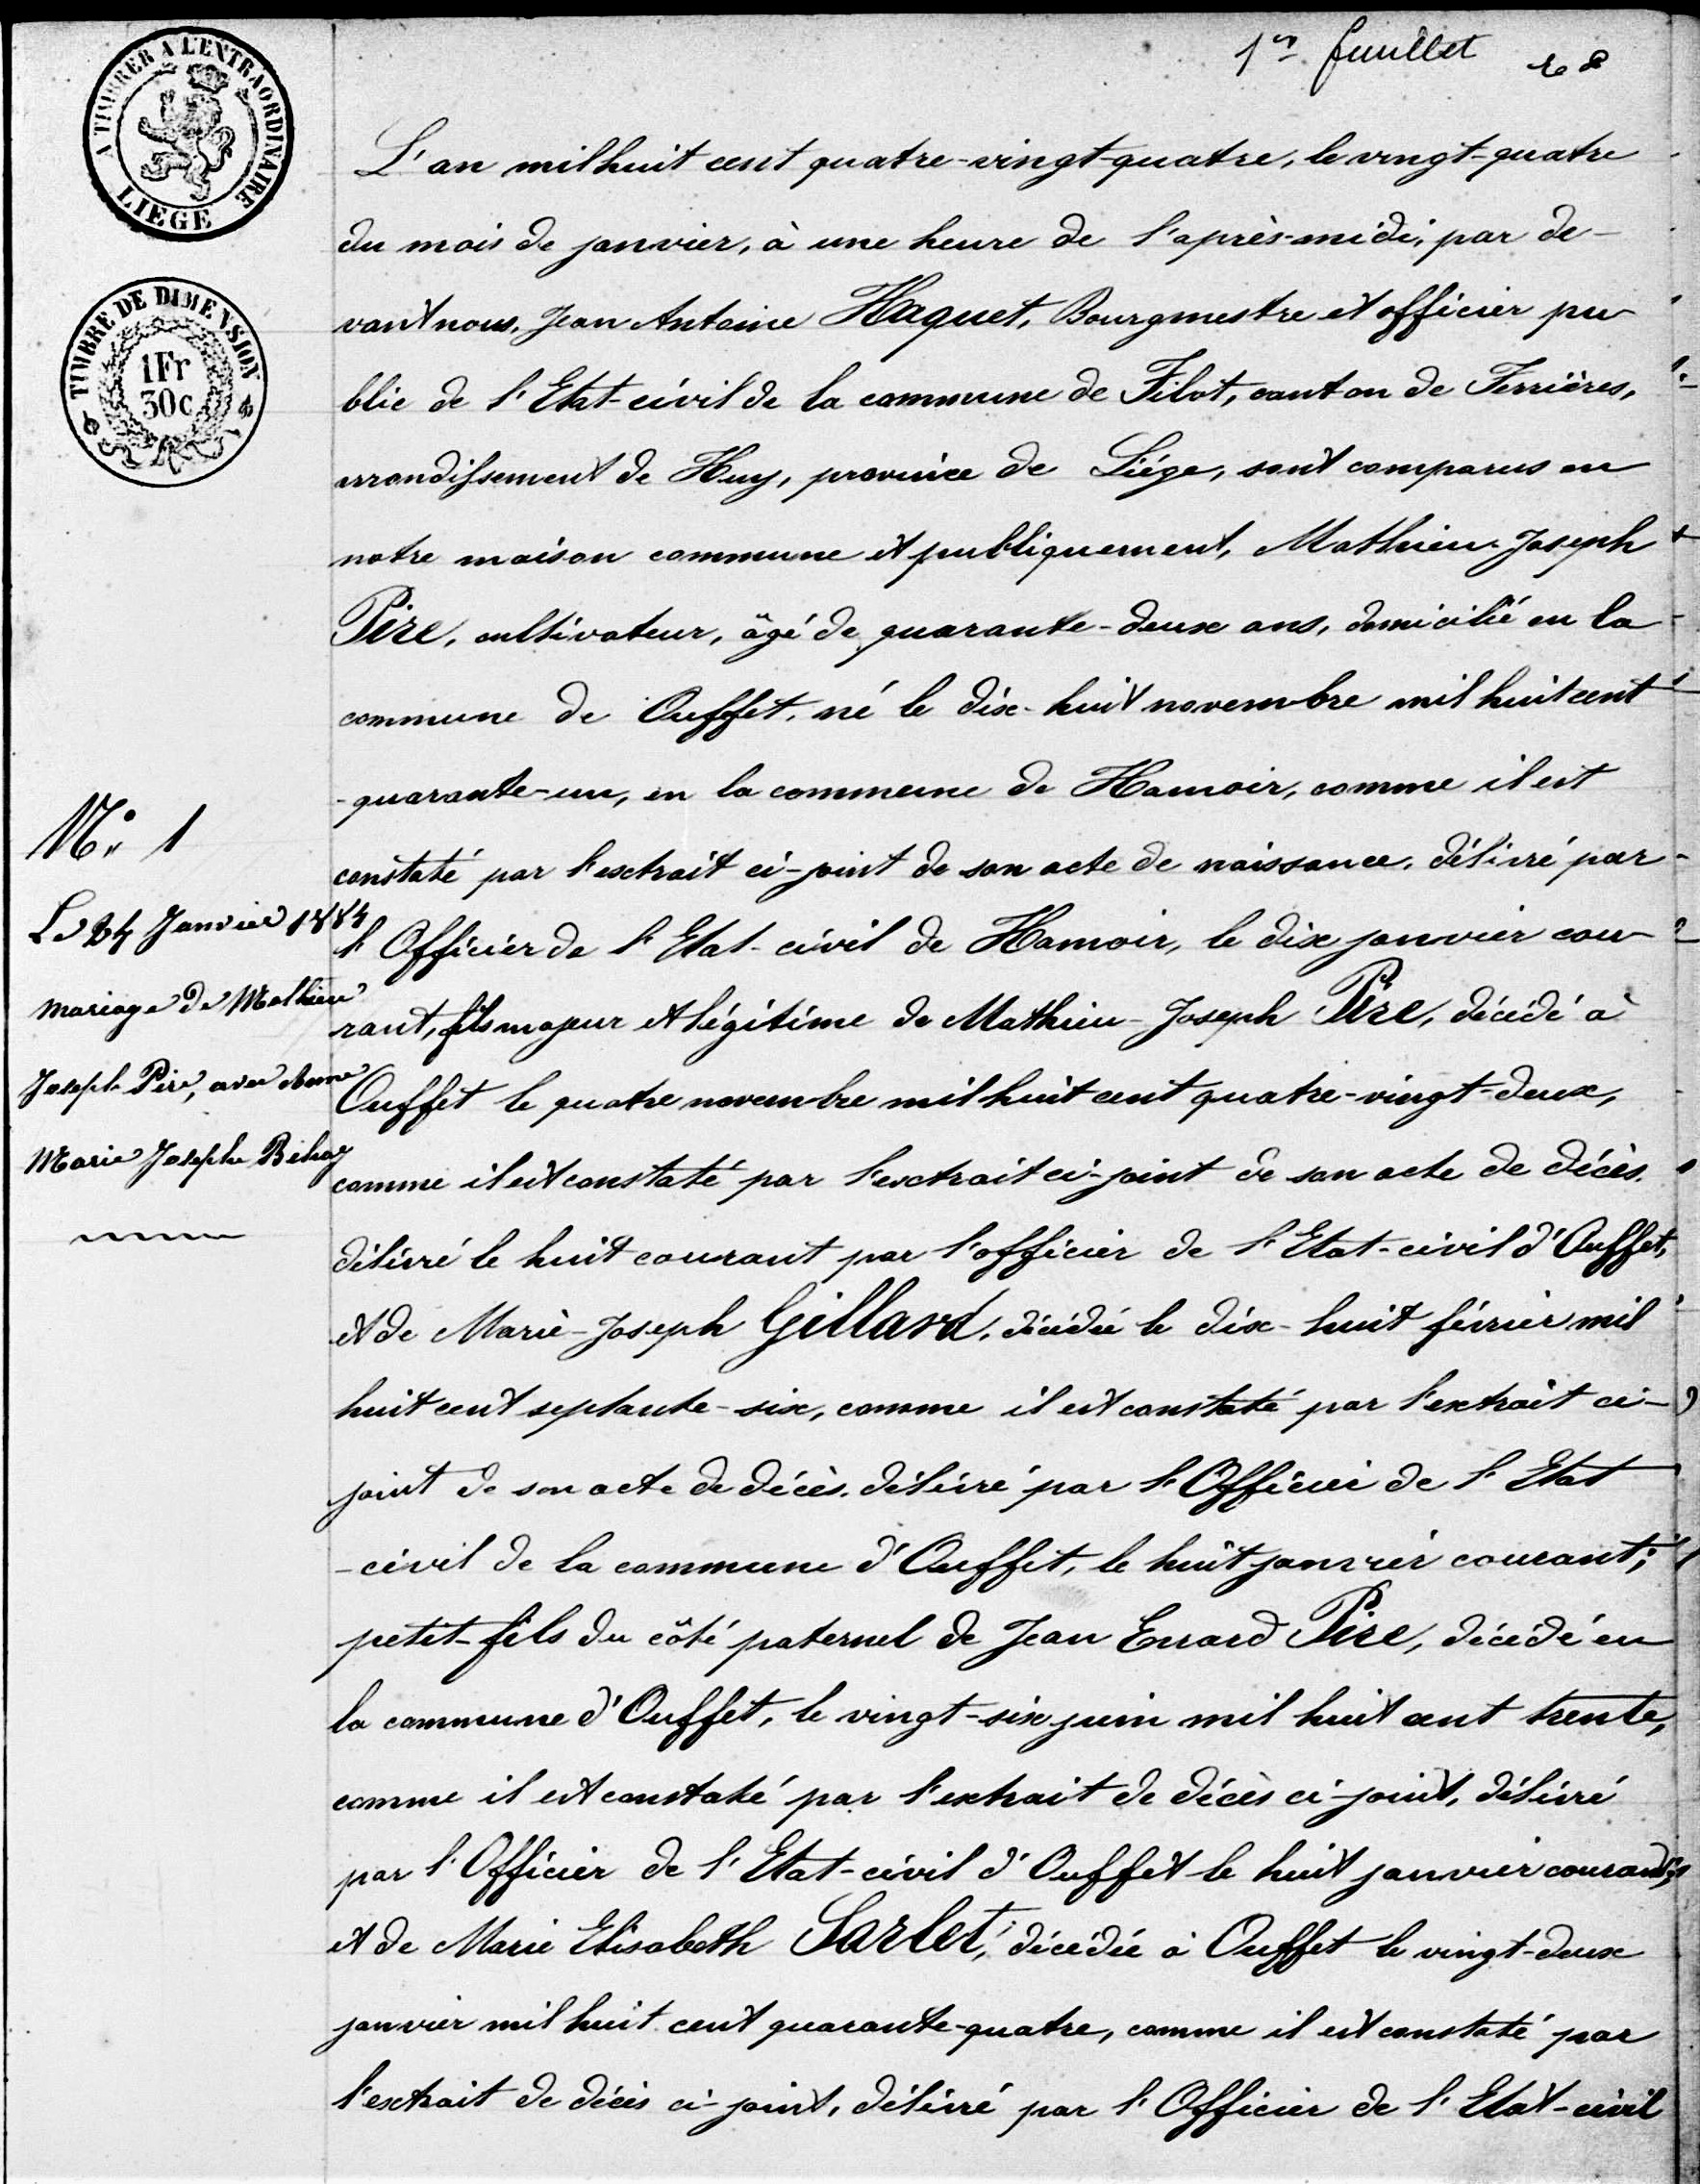 1er feuillet
A TIMBRER A L'EXTRAORDINAIRE
LIEGE
TIMBRE DE DIMENSION
1Fr
30c
L'an mil huit cent quatre-vingt-quatre, le vingt-quatre
du mois de janvier, à une heure de l'après-midi, par de-
vant nous, Jean Antoine Haquet, Bourgmestre et officier pu-
blic de l'Etat-civil de la commune de Filot, canton de Ferrières,
arrondissement de Huy, province de Liége, sont comparus en
notre maison commune et publiquement, Mathieu-Joseph
Pire, cultivateur, âgé de quarante-deux ans, domicilié en la
commune de Ouffet, né le dix-huit novembre mil huit cent
-quarante-un, en la commune de Hamoir, comme il est
constaté par l'extrait ci-joint de son acte de naissance, délivré par
l'Officier de l'Etat-civil de Hamoir, le dix janvier cou-
rant, fils majeur et légitime de Mathieu-Joseph Pire, décédé à
Ouffet le quatre novembre mil huit cent quatre-vingt-deux,
comme il est constaté par l'extrait ci-joint de son acte de décès,
délivré le huit courant par l'officier de l'Etat-civil d'Ouffet,
et de Marie-Joseph Gillard, décédée le dix-huit février mil
huit cent septante-six, comme il est constaté par l'extrait ci-
joint de son acte de décès, délivré par l'Officier de l'Etat
-civil de la commune d'Ouffet, le huit janvier courant;
petit-fils du côté paternel de Jean Errard Pire, décédé en
la commune d'Ouffet, le vingt-six juin mil huit cent trente,
comme il est constaté par l'extrait de décès ci-joint, délivré
par l'Officier de l'Etat-civil d'Ouffet le huit janvier courant;
et de Marie Elisabeth Sarlet, décédée à Ouffet le vingt-deux
janvier mil huit cent quarante-quatre, comme il est constaté par
l'extrait de décès ci-joint, délivré par l'Officier de l'Etat-civil
No 1
Le 24 Janvier 1884
mariage de Mathieu
Joseph Pire, avec Anne
Marie Josephe Bihay